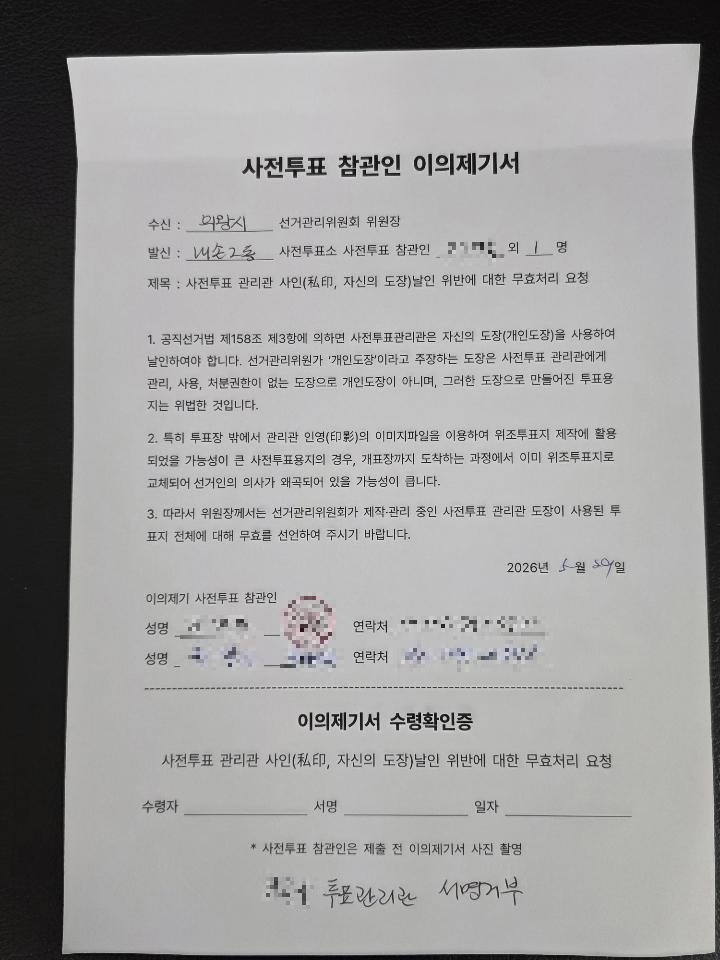 사전투표 참관인 이의제기서
수신 : 의왕시 선거관리위원회 위원장
발신 : 내손2동 사전투표소 사전투표 참관인 외 1 명
제목 : 사전투표 관리관 사인(私印, 자신의 도장)날인 위반에 대한 무효처리 요청
1. 공직선거법 제158조 제3항에 의하면 사전투표관리관은 자신의 도장(개인도장)을 사용하여
날인하여야 합니다. 선거관리위원가 '개인도장'이라고 주장하는 도장은 사전투표 관리관에게
관리, 사용, 처분권한이 없는 도장으로 개인도장이 아니며, 그러한 도장으로 만들어진 투표용
지는 위법한 것입니다.
2. 특히 투표장 밖에서 관리관 인영(印影)의 이미지파일을 이용하여 위조투표지 제작에 활용
되었을 가능성이 큰 사전투표용지의 경우, 개표장까지 도착하는 과정에서 이미 위조투표지로
교체되어 선거인의 의사가 왜곡되어 있을 가능성이 큽니다.
3. 따라서 위원장께서는 선거관리위원회가 제작·관리 중인 사전투표 관리관 도장이 사용된 투
표지 전체에 대해 무효를 선언하여 주시기 바랍니다.
2026년 5월 29일
이의제기 사전투표 참관인
성명 연락처
성명 연락처
이의제기서 수령확인증
사전투표 관리관 사인(私印, 자신의 도장)날인 위반에 대한 무효처리 요청
수령자 서명 일자
* 사전투표 참관인은 제출 전 이의제기서 사진 촬영
투표관리관 서명거부